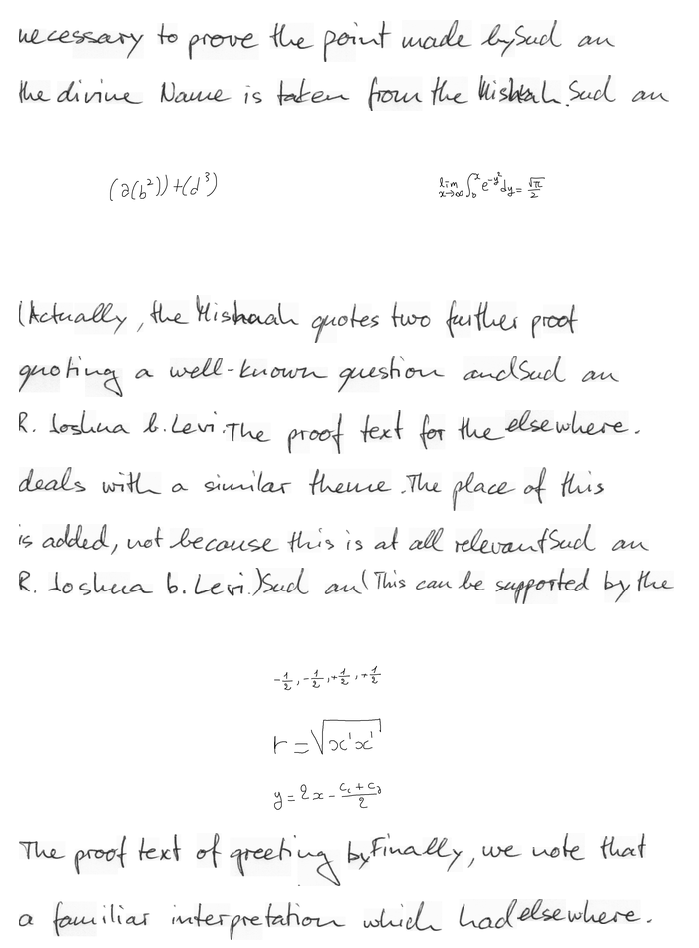 necessary to prove the point made by Sud an
the divine Name is taken from the Mishnah. Sud an
(a(b²))+(d³)
lim x→∞ ∫₀ˣ e^{-y²} dy = √π/2
(Actually, the Mishnah quotes two further proof
quoting a well-known question and Sud an
R. Joshua b. Levi. The proof text for the elsewhere.
deals with a similar theme. The place of this
is added, not because this is at all relevant Sud an
R. Joshua b. Levi.) Sud an (This can be supported by the
-1/2, -1/2, +1/2, +1/2
r = √x'x'
y = 2x -
The proof text of greeting by Finally, we note that
a familiar interpretation which had elsewhere.